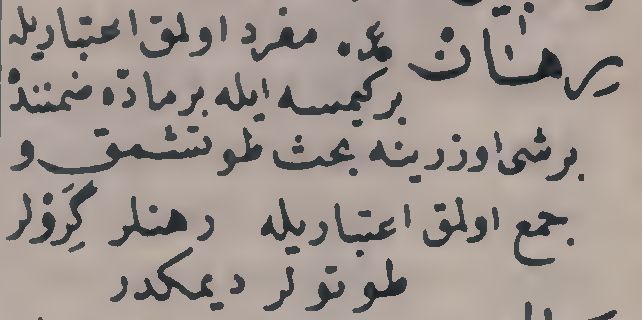 رهٓنان عد. مفرد اولمق اعتباريله
بركيمسه ايله برمادّه ضمننده
برشى اوزرينه بحث طوتشمق و
جمع اولمق اعتباريله رهنلر گِرَوْلر
طوتولر ديمكدر